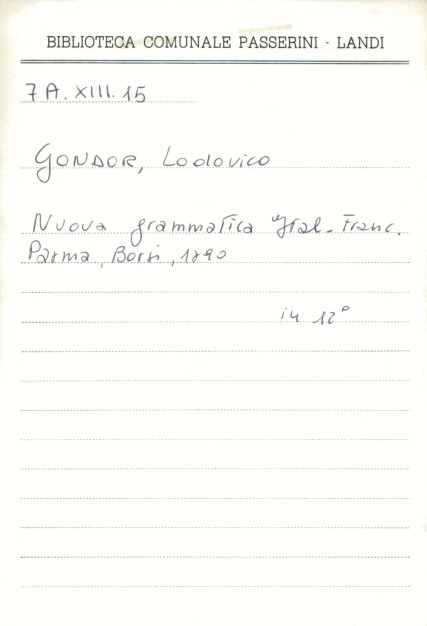 BIBLIOTECA COMUNALE PASSERINI - LANDI
7 A. XIII. 15
GONDOR, Lodovico
Nuova grammatica Ytal. Franc.
Parma, Borsi, 1790
in 12°